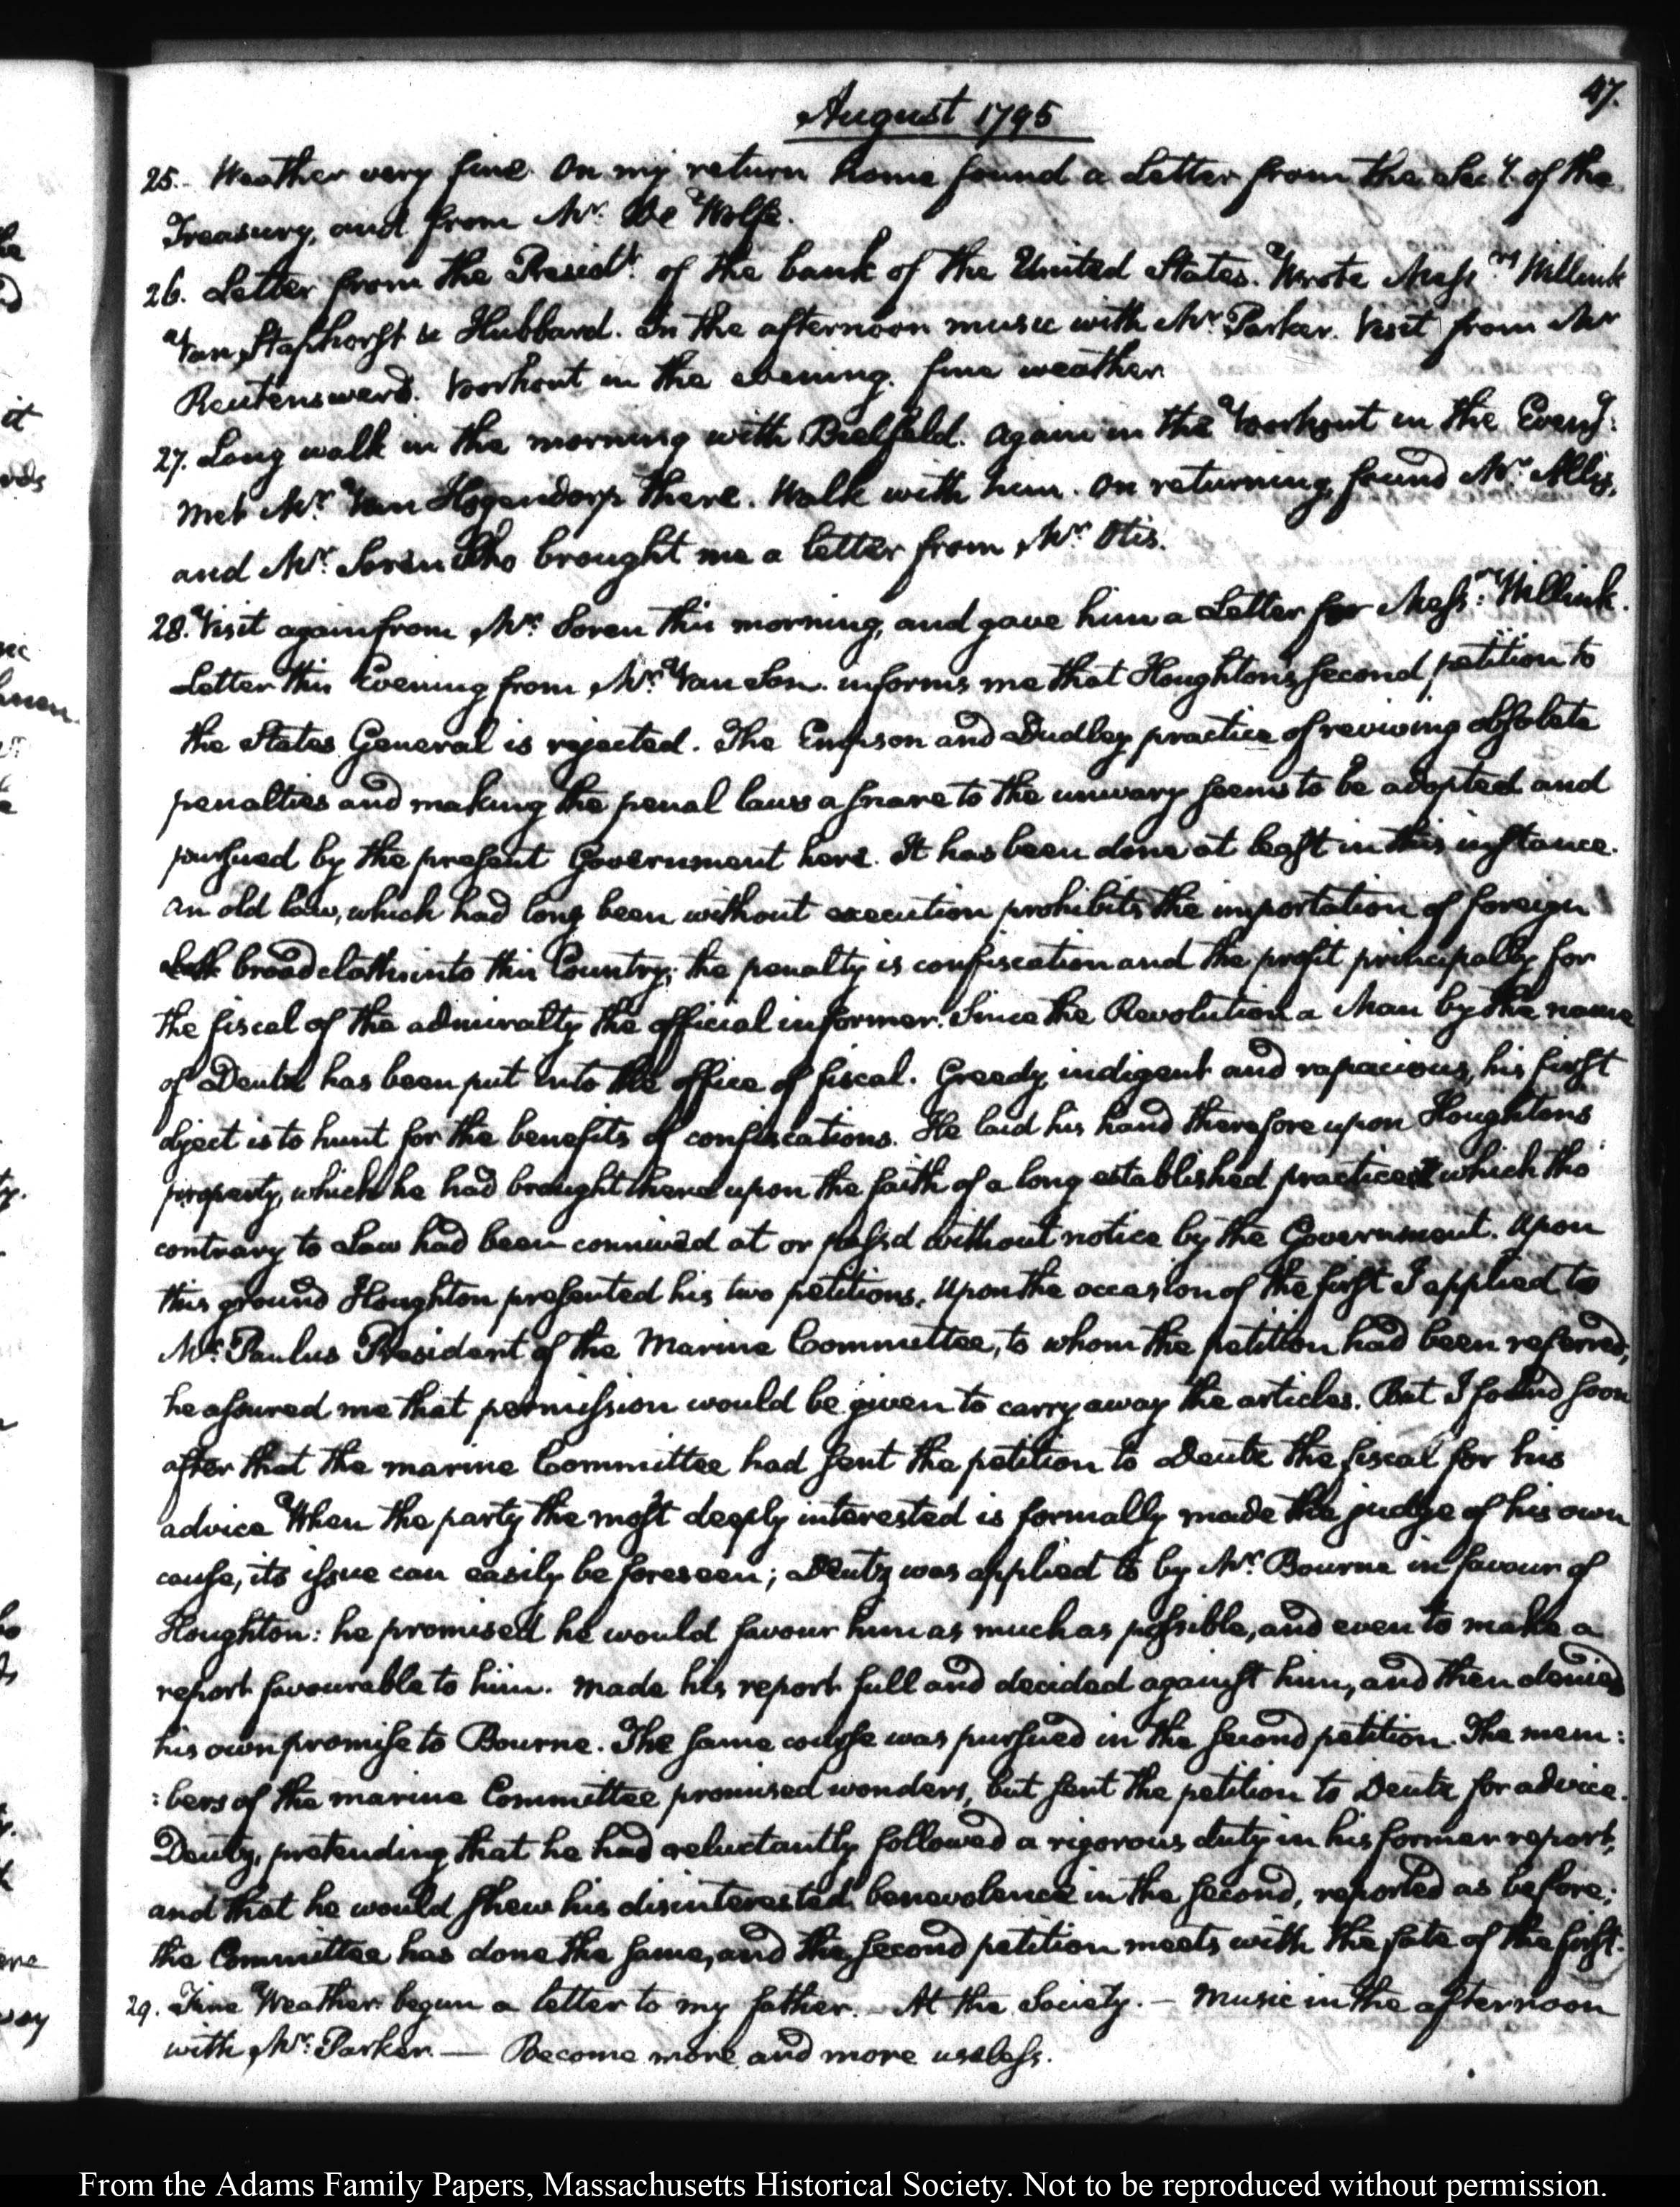 47.
August 1795
25. Weather very fine. On my return home found a Letter from the Secy. of the
Treasury, and from Mr. De Wolfe.
26. Letter from the Presidt. of the bank of the United States. Wrote Messrs Willink
Van Staphorst & Hubbard. In the afternoon music with Mr Parker. Visit from Mr
Reutensward. Voorhout in the evening. fine weather.
27. Long walk in the morning with Bielfeld. again in the Voorhout in the Eveng:
met Mr. Van Hogendorp there. Walk with him. On returning, found Mr. Allis,
and Mr. Soren who brought me a letter from Mr. Otis.
28. Visit again from Mr. Soren this morning, and gave him a Letter for Messrs: Willink.
Letter this Evening from Mr. Van Son. informs me that Houghton's second petition to
the States General is rejected. The Empson and Dudley practice of reviving obsolete
penalties and making the penal laws a snare to the unwary seems to be adopted and
pursued by the present Government here. It has been done at least in this instance.
An old law, which had long been without execution prohibits the importation of foreign
broad cloths into this Country; the penalty is confiscation and the profit principally for
the fiscal of the admiralty the official informer. Since the Revolution a Man by the name
of Deutz has been put into the office of fiscal. Greedy, indigent and rapacious, his first
object is to hunt for the benefits of confiscations. He laid his hand therefore upon Houghtons
property, which he had brought here upon the faith of a long established practice which tho'
contrary to Law had been connived at or pass'd without notice by the Government. Upon
this ground Houghton presented his two petitions. Upon the occasion of the first I applied to
Mr. Paulus President of the Marine Committee, to whom the petition had been referred,
he assured me that permission would be given to carry away the articles. But I found soon
after that the marine Committee had sent the petition to Deutz the fiscal for his
advice When the party the most deeply interested is formally made the judge of his own
cause, its issue can easily be foreseen; Deutz was applied to by Mr. Bourne in favour of
Houghton: he promised he would favour him as much as possible, and even to make a
report favourable to him. made his report full and decided against him, and then denied
his own promise to Bourne. The same course was pursued in the second petition. The mem:
:bers of the marine Committee promised wonders, but sent the petition to Deutz for advice.
Deutz, pretending that he had reluctantly followed a rigorous duty in his former report,
and that he would shew his disinterested benevolence in the second, reported as before;
the Committee has done the same, and the second petition meets with the fate of the first.
29. Fine Weather. begun a letter to my father. At the Society. — Music in the afternoon
with Mr: Parker. — Become more and more useless.
From the Adams Family Papers, Massachusetts Historical Society. Not to be reproduced without permission.